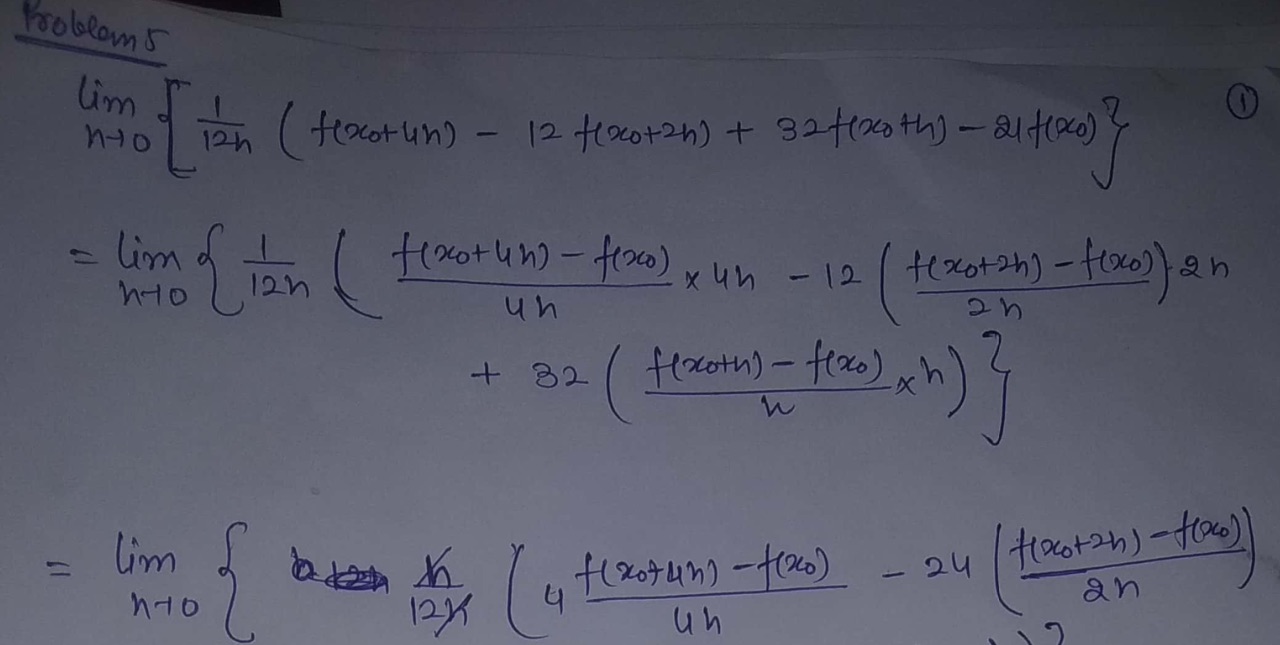 Problem 5
①
lim h→0 [ 1/12h ( f(x0+4h) − 12 f(x0+2h) + 32 f(x0+h) − 21 f(x0) }
= lim h→0 { 1/12h ( f(x0+4h) − f(x0) / 4h × 4h − 12 ( f(x0+2h) − f(x0) / 2h ) 2h
+ 32 ( f(x0+h) − f(x0) / h × h ) }
= lim h→0 { h/12h ( 4 f(x0+4h) − f(x0) / 4h − 24 ( f(x0+2h) − f(x0) / 2h )